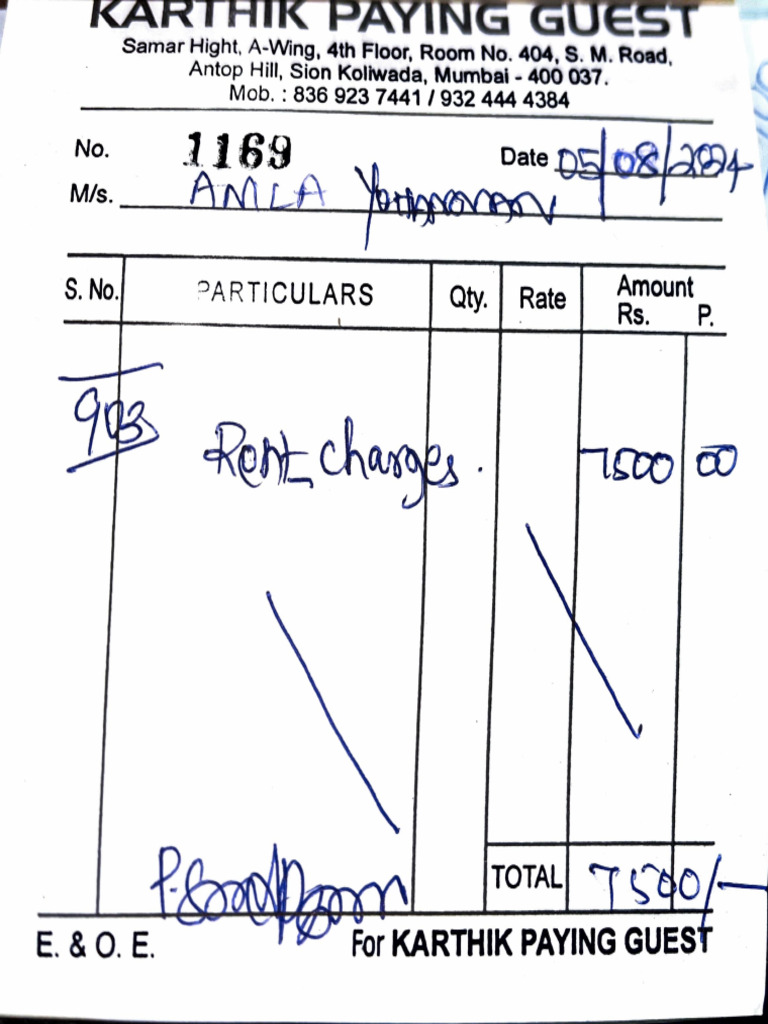 KARTHIK PAYING GUEST
Samar Hight, A-Wing, 4th Floor, Room No. 404, S. M. Road,
Antop Hill, Sion Koliwada, Mumbai - 400 037.
Mob. : 836 923 7441 / 932 444 4384
No. 1169 Date 05/08/2024
M/s. AMLA
S. No. PARTICULARS Qty. Rate Amount Rs. P.
903 Rent charges. 7500 00
TOTAL 7500/-
E. & O. E. For KARTHIK PAYING GUEST